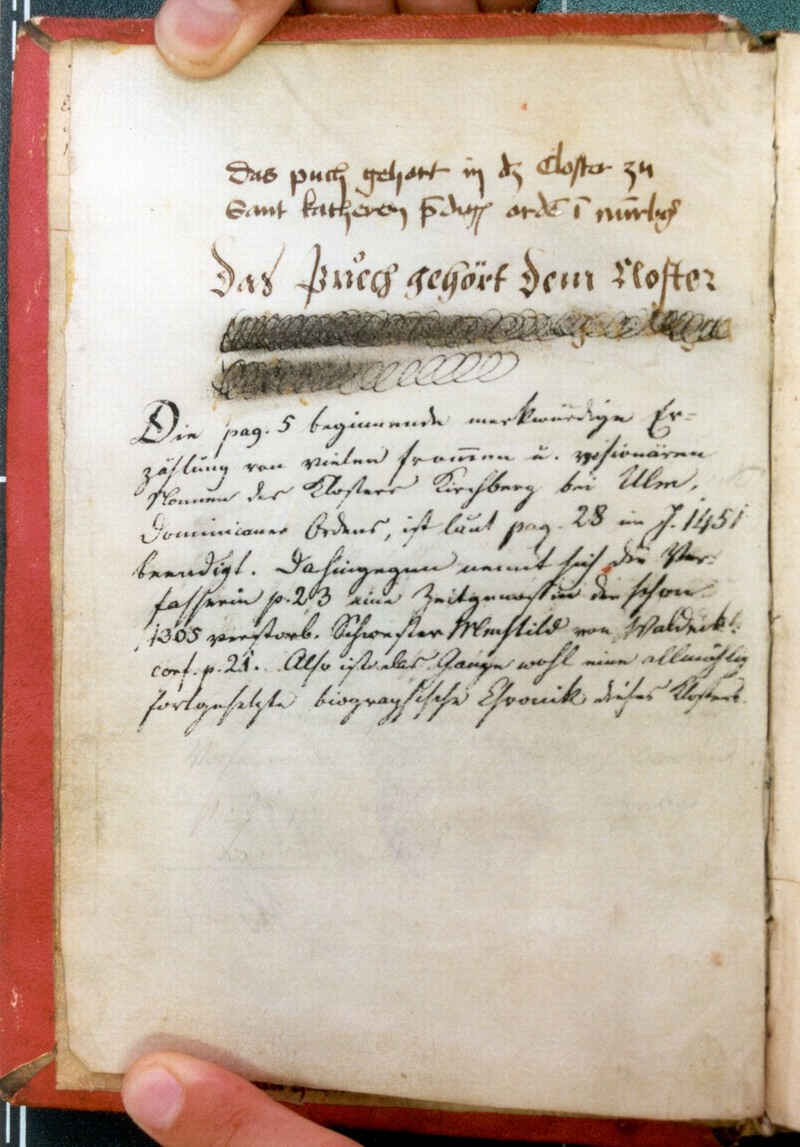 das puch gehort in dz Closter zu
Sant katheren p̄diǵ ordē ī nu̅rbg̃
Das Puech gehört dem Closter
Die pag. 5 beginnende merkwürdige Er=
zählung von vielen from̅en u. visionären
Nonnen des Klosters Kirchberg bei Ulm,
Dominicaner Ordens, ist laut pag. 28 im J. 1451
beendigt. Dahingegen nennt sich die Ver=
fasserin p. 23 eine Zeitgenossin der schon
1305 verstorb. Schwester Mechtild von Waldeck.
conf. p. 21. Also ist das Ganze wohl eine allmählig
fortgesetzte biographische Chronik dieses Klosters.